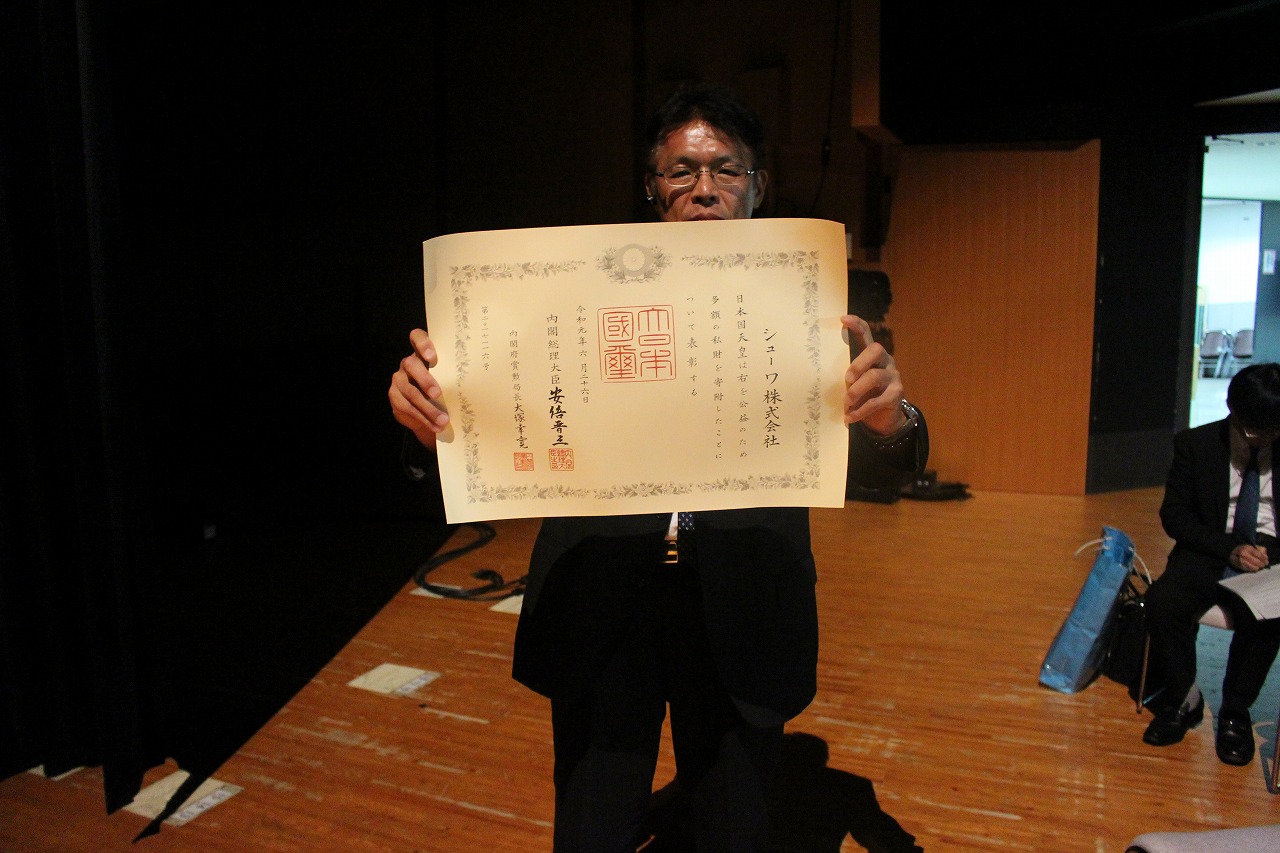 シューワ株式会社
日本国天皇は右を公益のため
多額の私財を寄附したことに
ついて表彰する
大日本
國璽
令和元年六月二十六日
内閣総理大臣安倍晋三
内閣府賞勲局長大塚幸寛